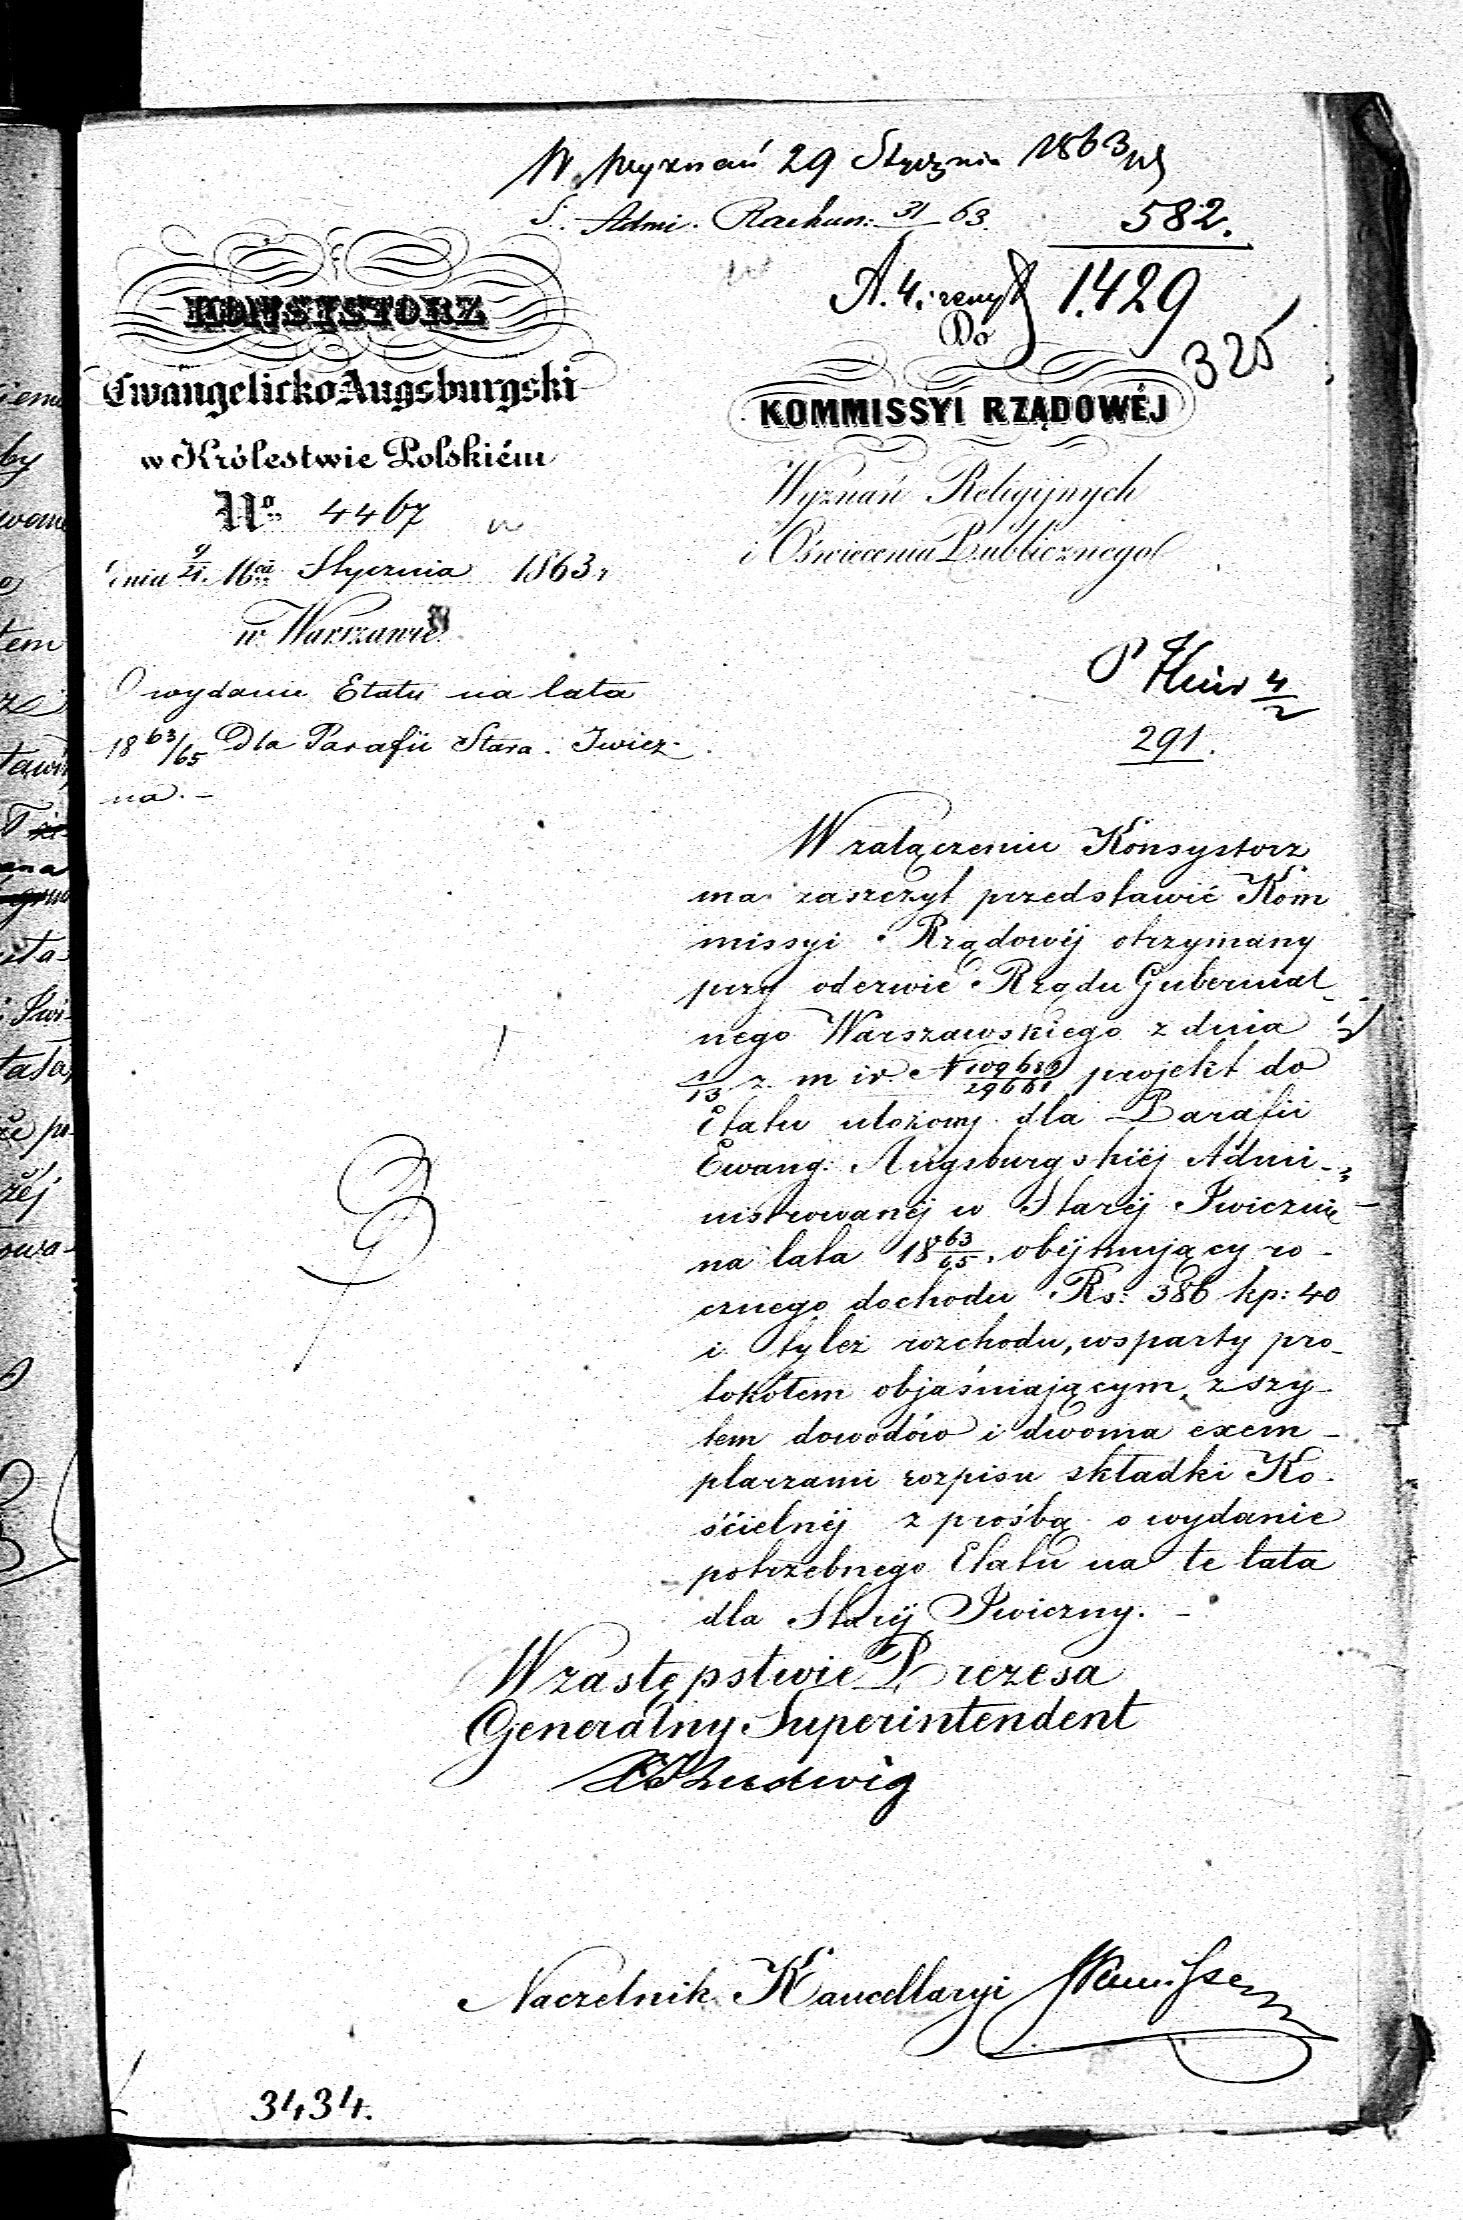 W. Wyznań 29 Stycznia 1863
S. Admi. Rachun: 31 63. 582.
A. 4. 1429
325
KONSYSTORZ
Ewangelicko Augsburgski
w Królestwie Polskiém
No 4467
dnia 9/21 Mca Stycznia 1863 r
w Warszawie
O wydanie Etatu na lata
18 63/65 Dla Parafii Stara Iwicz-
na. -
Do
KOMMISSYI RZĄDOWÉJ
Wyznań Religijnych
i Oświecenia Publicznego
P 4/2
291.
W załączeniu Konsystorz
ma zaszczyt przedstawić Kom
missyi Rządowéj otrzymany
przy odezwie Rządu Gubernial-
nego Warszawskiego z dnia
1/13 z. m i r. N projekt do
Etatu ułożony dla Parafii
Ewang. Augsburgskiéj Admi-
nistrowanéj w Staréj Iwicznie
na lata 18 63/65, obéjmujący ro-
cznego dochodu Rs: 386 kp: 40
i tyleż rozchodu, wsparty pro-
tokółem objaśniającym, z szy-
tem dowodów i dwoma exem-
plarzami rozpisu składki Ko-
ścielnéj z prośbą o wydanie
potrzebnego Etatu na te lata
dla Staréj Iwiczny. -
W zastępstwie Prezesa
Generalny Superintendent
Ludwig
Naczelnik Kancellaryi
3434.